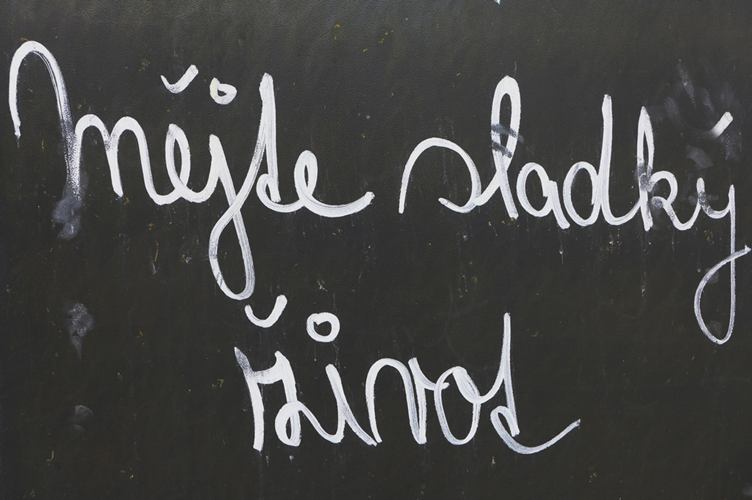 Mějte sladký
život